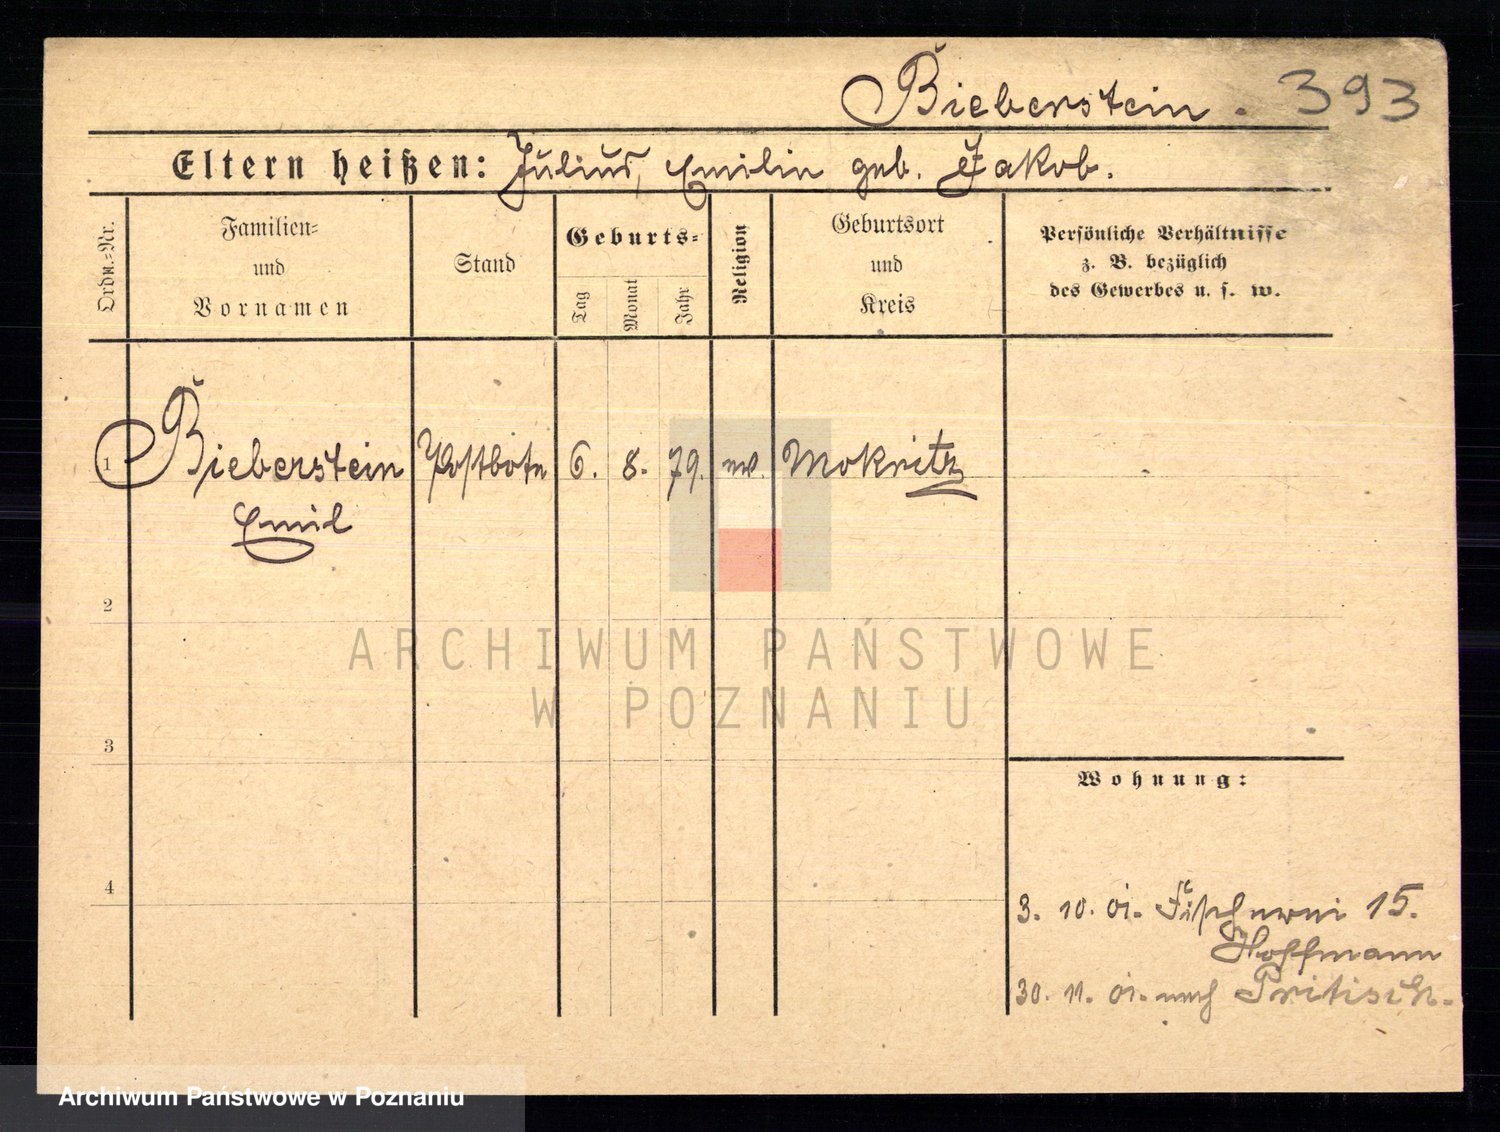 Bieberstein. 393
Eltern heißen: Julius, Emilie geb. Jakob.
Ordn.=Nr.
Familien=
und
Vornamen
Stand
Geburts=
Tag
Monat
Jahr
Religion
Geburtsort
und
Kreis
Persönliche Verhältnisse
z. B. bezüglich
des Gewerbes u. s. w.
1 Bieberstein Postbote 6. 8. 79. ev. Mokritz
Emil
2
ARCHIWUM PAŃSTWOWE
W POZNANIU
3
Wohnung:
4
3. 10. 01. Fischerei 15.
Hoffmann
30. 11. 01. nach Pritisch.
Archiwum Państwowe w Poznaniu